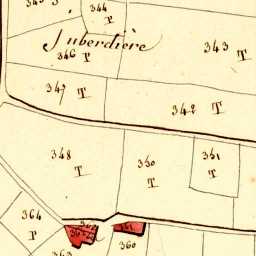 344
P
Juberdière
343
T
346 P
347 T
342 T
348
T
350
T
351
T
364
P
360